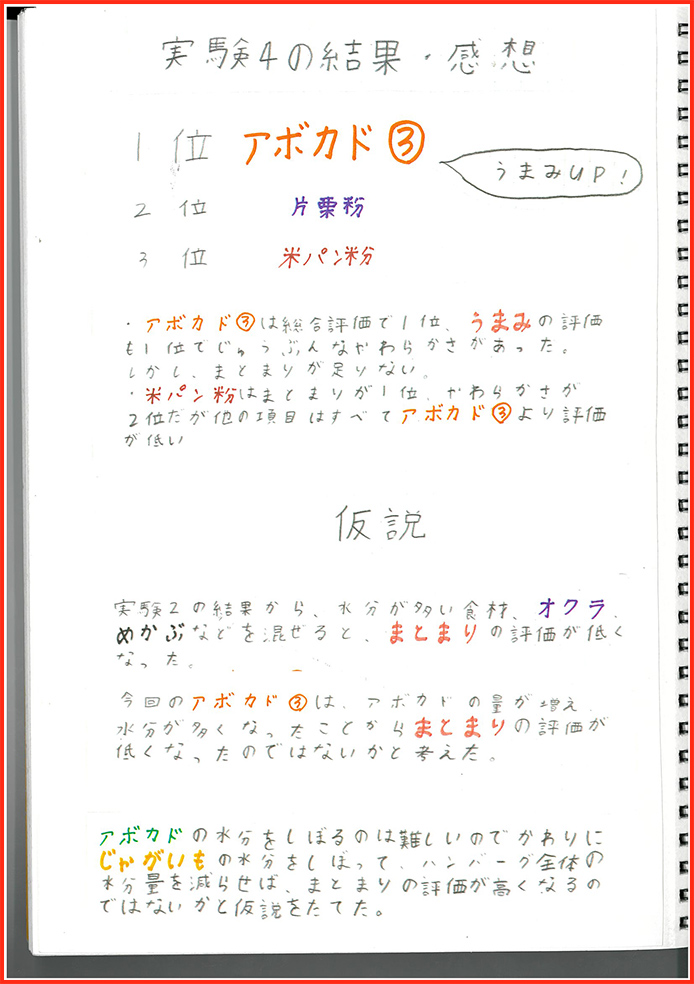 実験4の結果・感想
1位 アボカド③
うまみUP!
2位 片栗粉
3位 米パン粉
・アボカド③は総合評価で1位、うまみの評価
も1位でじゅうぶんなやわらかさがあった。
しかし、まとまりが足りない。
・米パン粉はまとまりが1位、やわらかさが
2位だが他の項目はすべてアボカド③より評価
が低い
仮説
実験2の結果から、水分が多い食材、オクラ、
めかぶなどを混ぜると、まとまりの評価が低く
なった。
今回のアボカド③は、アボカドの量が増え、
水分が多くなったことからまとまりの評価が
低くなったのではないかと考えた。
アボカドの水分をしぼるのは難しいのでかわりに
じゃがいもの水分をしぼって、ハンバーグ全体の
水分量を減らせば、まとまりの評価が高くなるの
ではないかと仮説をたてた。